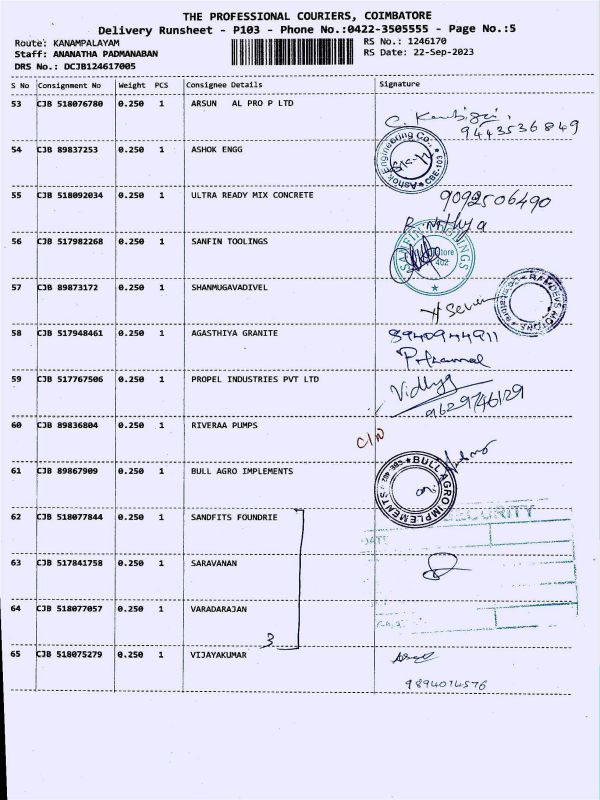 THE PROFESSIONAL COURIERS, COIMBATORE
Delivery Runsheet - P103 - Phone No.:0422-3505555 - Page No.:5
Route: KANAMPALAYAM
RS No.: 1246170
Staff: ANANATHA PADMANABAN
RS Date: 22-Sep-2023
DRS No.: DCJB124617005
S No Consignment No Weight PCS Consignee Details Signature
53 CJB 518076780 0.250 1 ARSUN AL PRO P LTD
9443536849
54 CJB 89837253 0.250 1 ASHOK ENGG
Ashok Engineering Co., CBE-103
55 CJB 518092034 0.250 1 ULTRA READY MIX CONCRETE
9092506490
R. nithya
56 CJB 517982268 0.250 1 SANFIN TOOLINGS
SANFIN TOOLINGS
402
57 CJB 89873172 0.250 1 SHANMUGAVADIVEL
58 CJB 517948461 0.250 1 AGASTHIYA GRANITE
8940944911
59 CJB 517767506 0.250 1 PROPEL INDUSTRIES PVT LTD
Vidhya
9629746129
60 CJB 89836804 0.250 1 RIVERAA PUMPS
C/N
61 CJB 89867909 0.250 1 BULL AGRO IMPLEMENTS
BULL AGRO IMPLEMENTS
62 CJB 518077844 0.250 1 SANDFITS FOUNDRIE
SECURITY
DATE
63 CJB 517841758 0.250 1 SARAVANAN
64 CJB 518077057 0.250 1 VARADARAJAN
3
65 CJB 518075279 0.250 1 VIJAYAKUMAR
9894074576